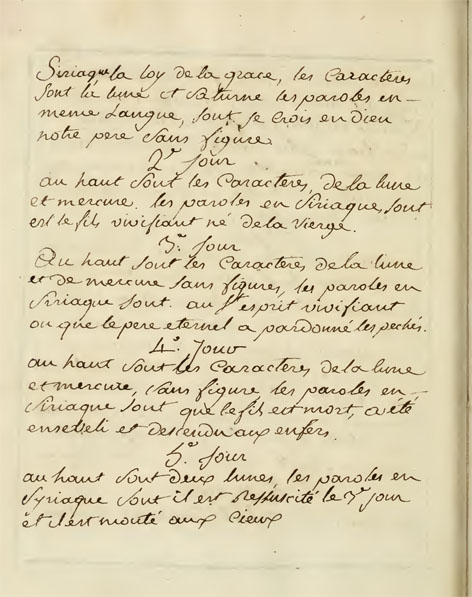 Siriaque la loy de la grace, les Caracteres
sont la lune et saturne les paroles en-
meme Langue, sont, je crois en dieu
notre pere sans figure.
2.e Jour
au haut sont les Caracteres, de la lune
et mercure. les paroles en Siriaque, sont
est le fils vivifiant né de la Vierge.
3.e Jour
Au haut sont les Caracteres de la lune
et de mercure sans figures, les paroles en
Siriaque sont. au St esprit vivifiant
ou que le pere eternel a pardonné les pechés.
4.e Jour
au haut sont les Caracteres de la lune
et mercure, sans figure les paroles en-
Siriaque sont que le fils est mort, a été
enseveli et descendu aux enfers.
5.e Jour
au haut sont deux lunes, les paroles en
Syriaque sont il est ressuscité le 3.e jour
et il est monté aux Cieux